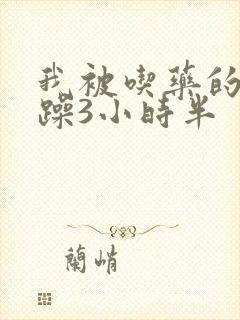 我被喫藥的
躁3小時半
蘭峭